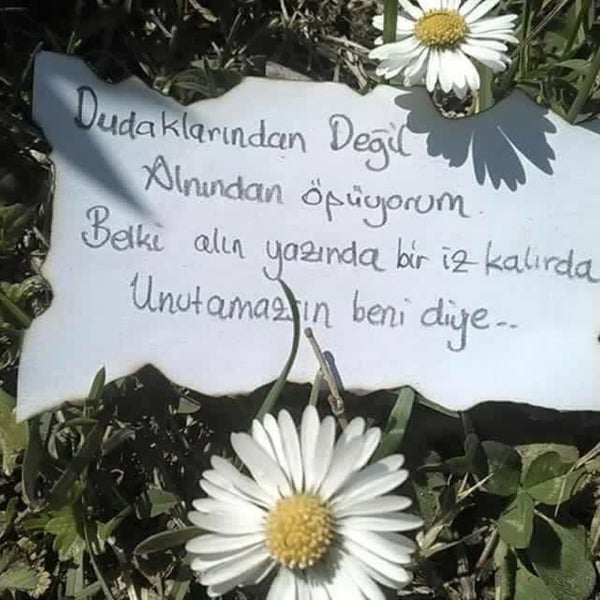 Dudaklarından Değil
Alnından öpüyorum.
Belki alın yazında bir iz kalırda
Unutamazsın beni diye...